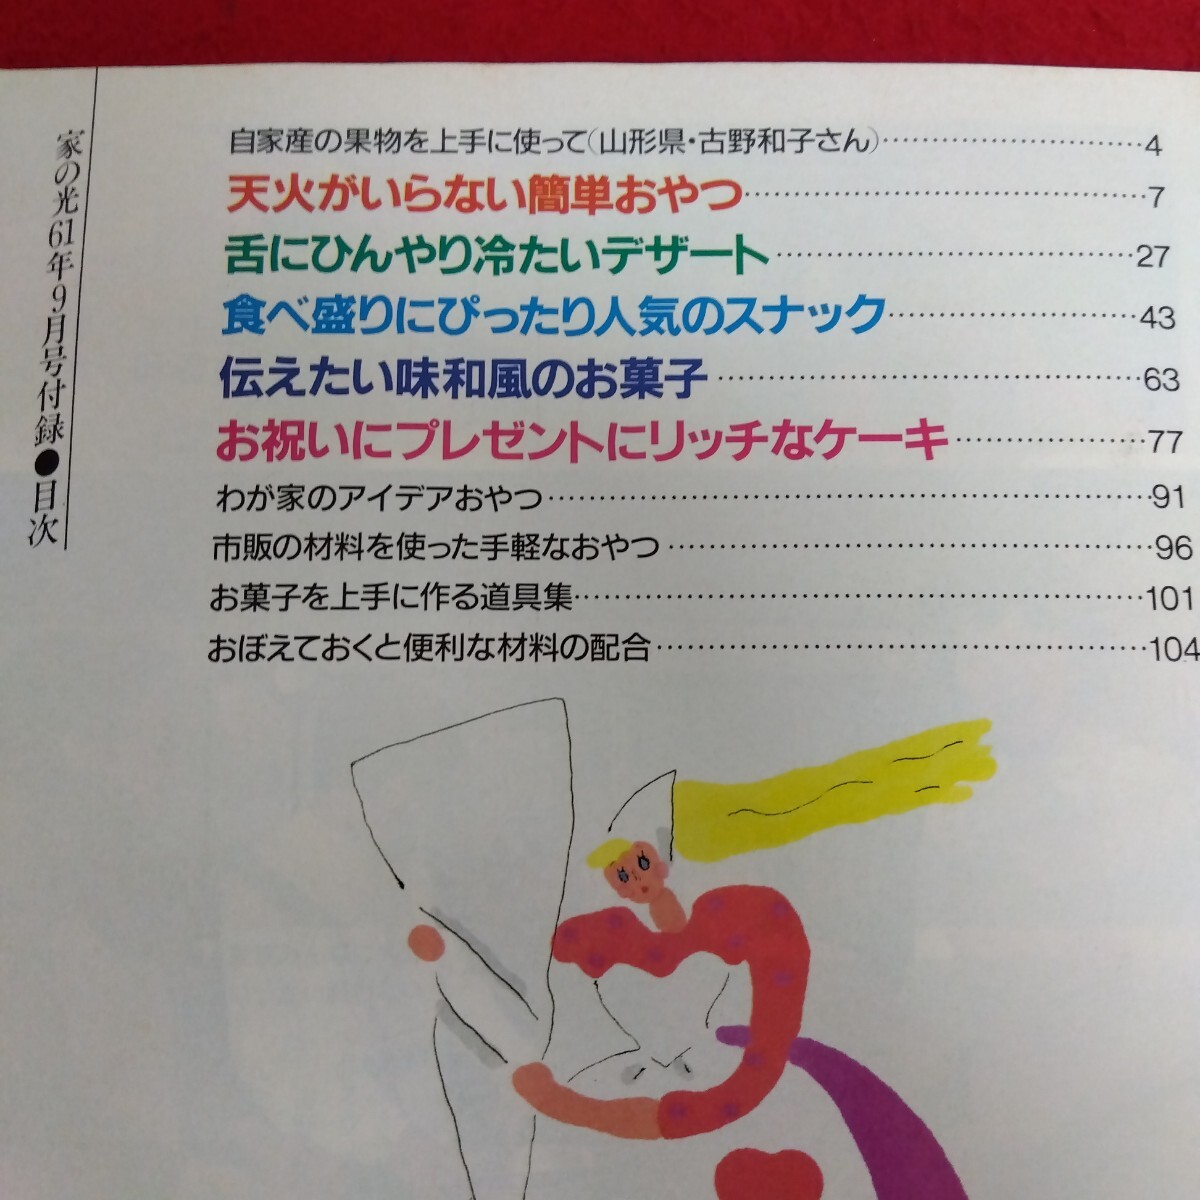 家の光61年9月号付録●目次
自家産の果物を上手に使って(山形県・古野和子さん)……………………4
天火がいらない簡単おやつ……………………7
舌にひんやり冷たいデザート……………………27
食べ盛りにぴったり人気のスナック……………………43
伝えたい味和風のお菓子……………………63
お祝いにプレゼントにリッチなケーキ……………………77
わが家のアイデアおやつ……………………91
市販の材料を使った手軽なおやつ……………………96
お菓子を上手に作る道具集……………………101
おぼえておくと便利な材料の配合……………………104